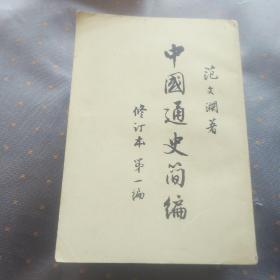 范文瀾著
中國通史简编
修订本 第一編